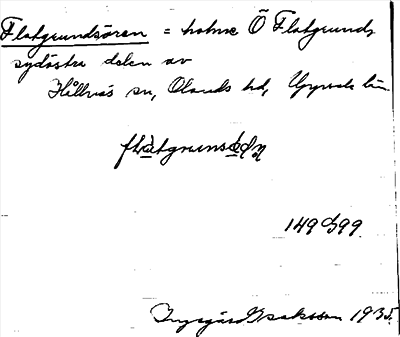 Flatgrundsören = holme Ö Flatgrund,
sydöstra delen av
Hållnäs sn, Olands hd, Uppsala län
149 G 99.
Ingegärd Isaksson 1935.